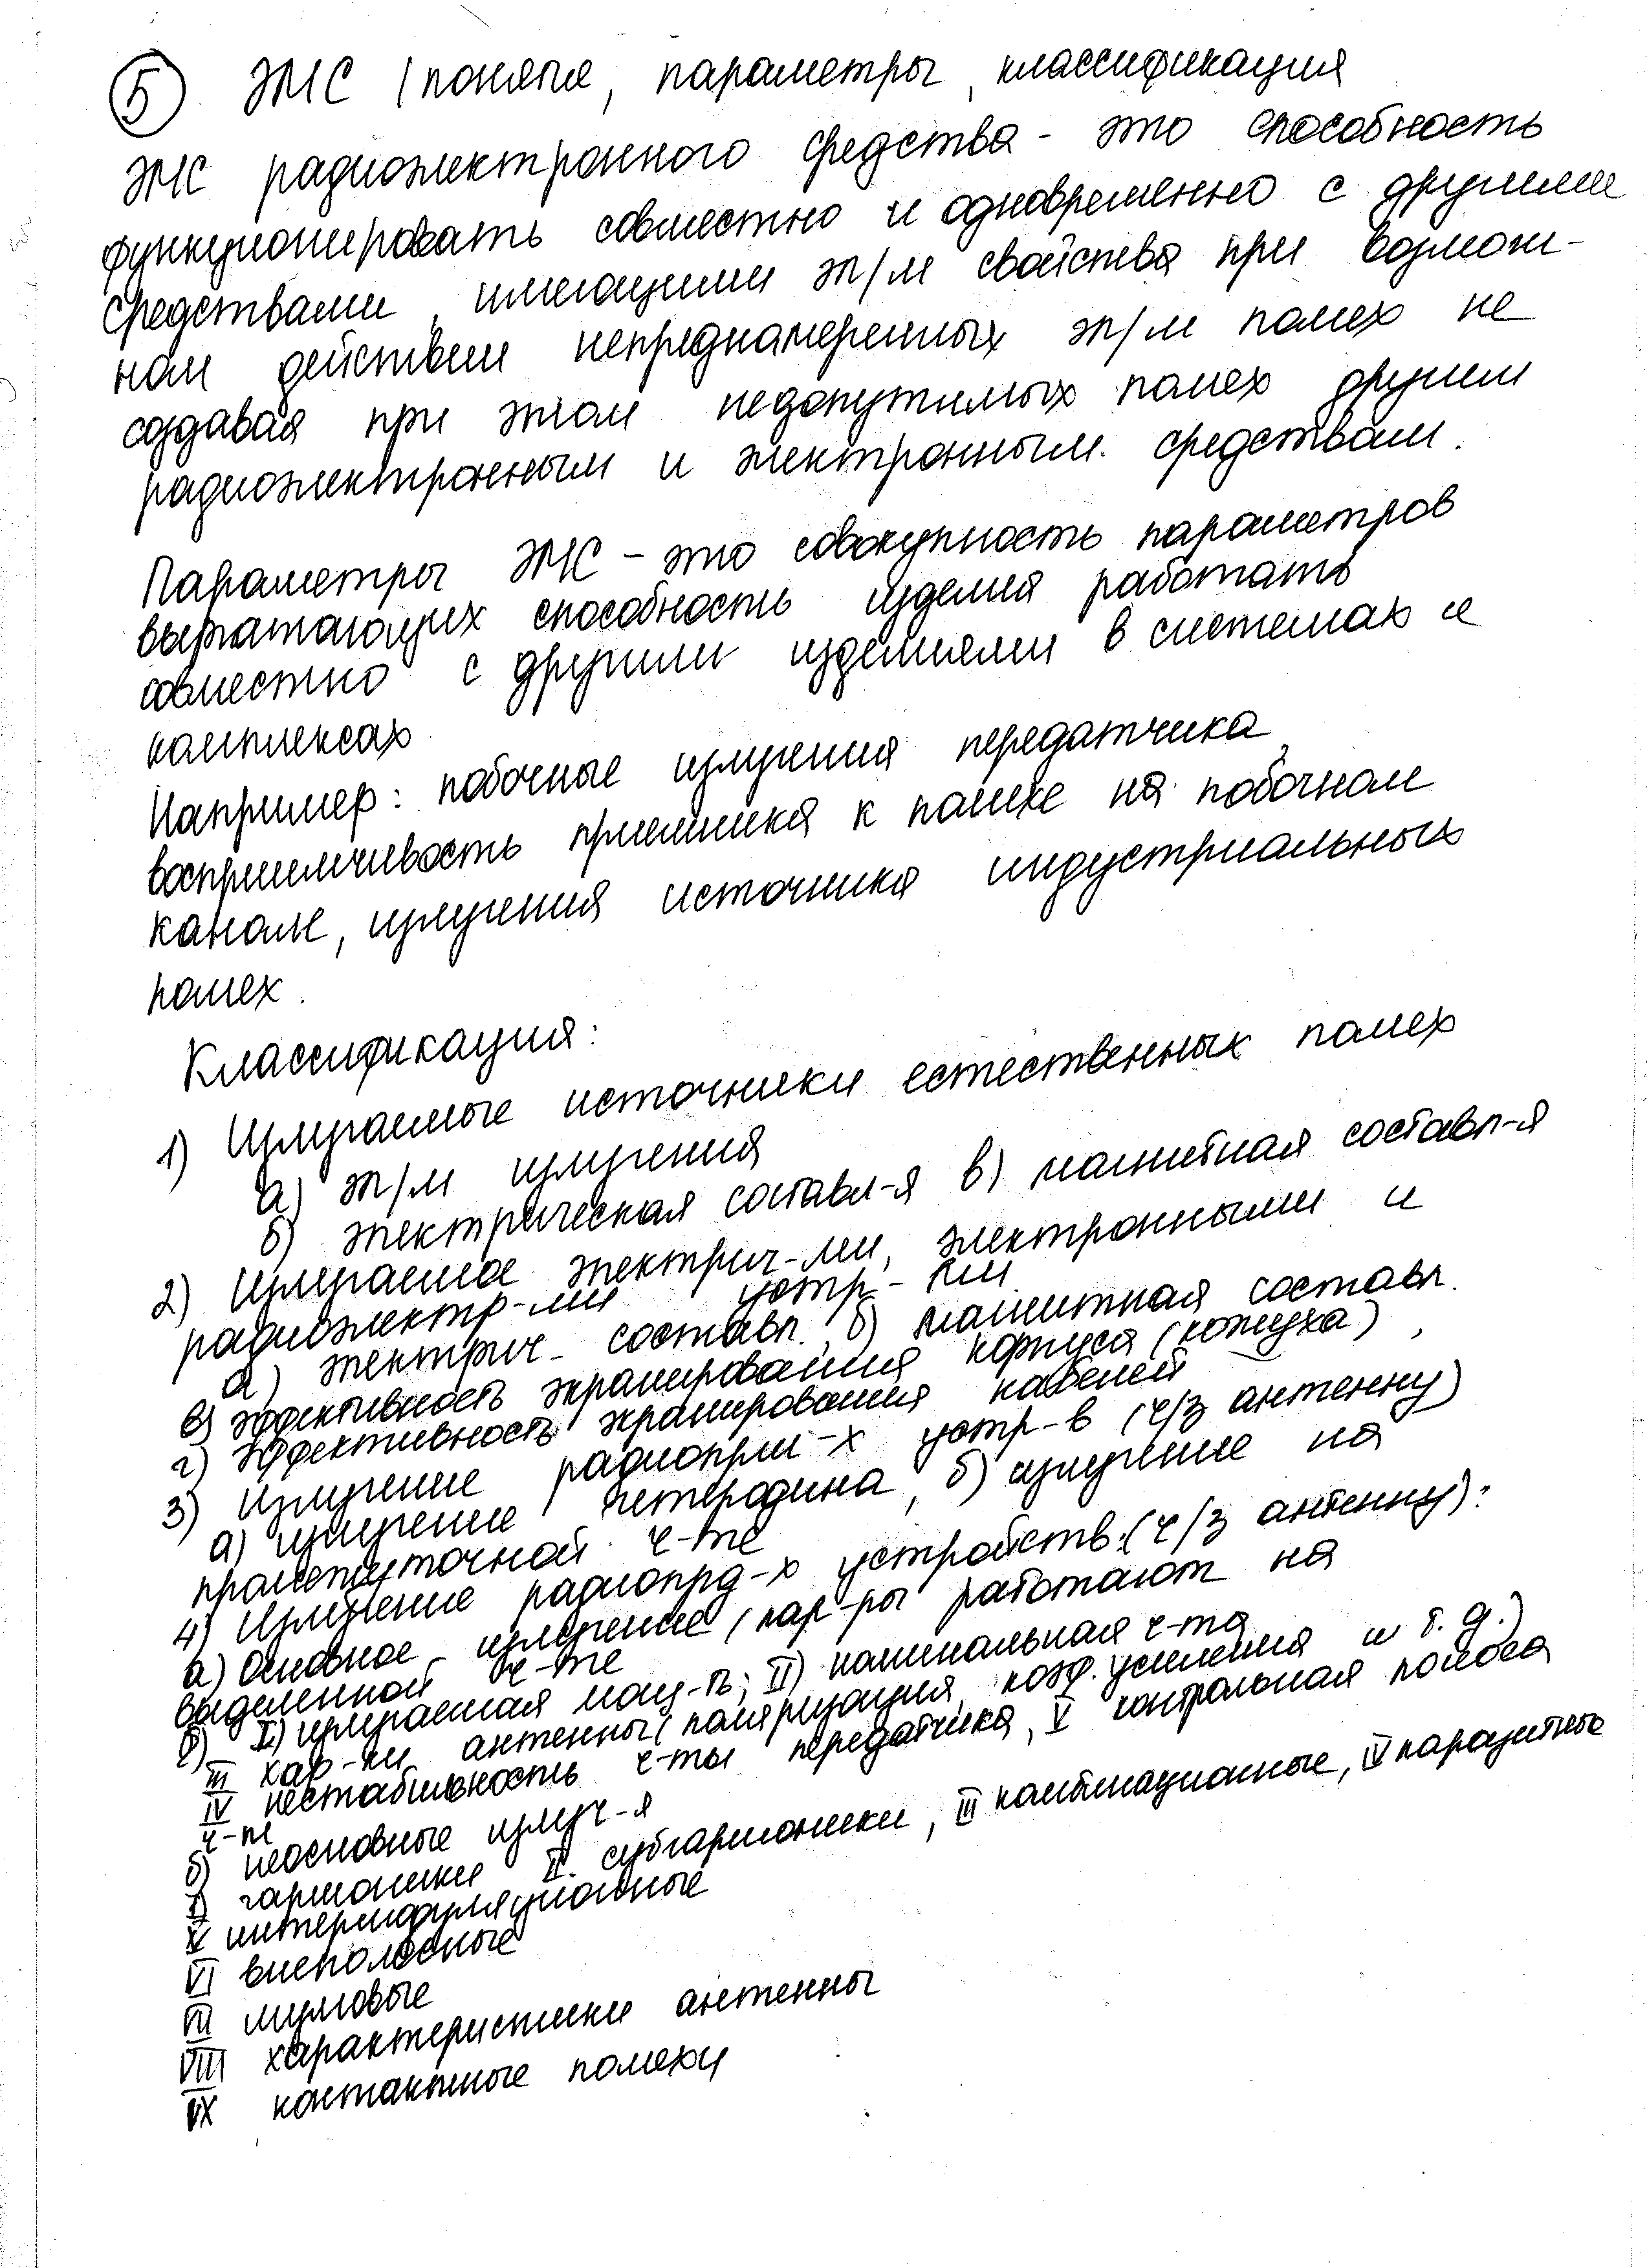 5 ЭМС (понятие, параметры, классификация
ЭМС радиоэлектронного средства - это способность
функционировать совместно и одновременно с другими
средствами, имеющими эл/м свойства при возмож-
ном действии непреднамеренных эл/м помех не
создавая при этом недопутимых помех другим
радиоэлектронным и электронным средствам.
Параметры ЭМС - это совокупность параметров
выражающих способность изделия работать
совместно с другими изделиями в системах и
комплексах
Например: побочные излучения передатчика,
восприимчивость приемника к помехе на побочном
канале, излучения источника индустриальных
помех.
Классификация:
1) Излучаемые источники естественных помех
а) эл/м излучения
б) электрическая составл-я в) магнитная составл-я
2) Излучаемое электрич-ми, электронными и
радиоэлектр-ми устр-ми
а) электрич. составл. б) магнитная составл.
в) эффективность экранирования корпуса (кожуха),
г) эффективность экранирования кабелей
3) Излучение радиоприм-х устр-в (ч/з антенну)
а) излучение гетеродина, б) излучение на
промежуточной ч-те
4) Излучение радиопрд-х устройств (ч/з антенну):
а) Основное излучение (пар-ры работают на
выделенной ч-те
I) излучаемая мощ-ть; II) номинальная ч-та
III хар-ки антенны (поляризация, коэф. усиления и т. д.)
IV нестабильность ч-ты передатчика, V контрольная полоса
ч-т
б) неосновные излуч-я
I) гармоники II. субгармоники, III комбинационные, IV паразитные
V интермодуляционные
VI внеполосные
VII шумовые
VIII характеристики антенны
IX контактные помехи